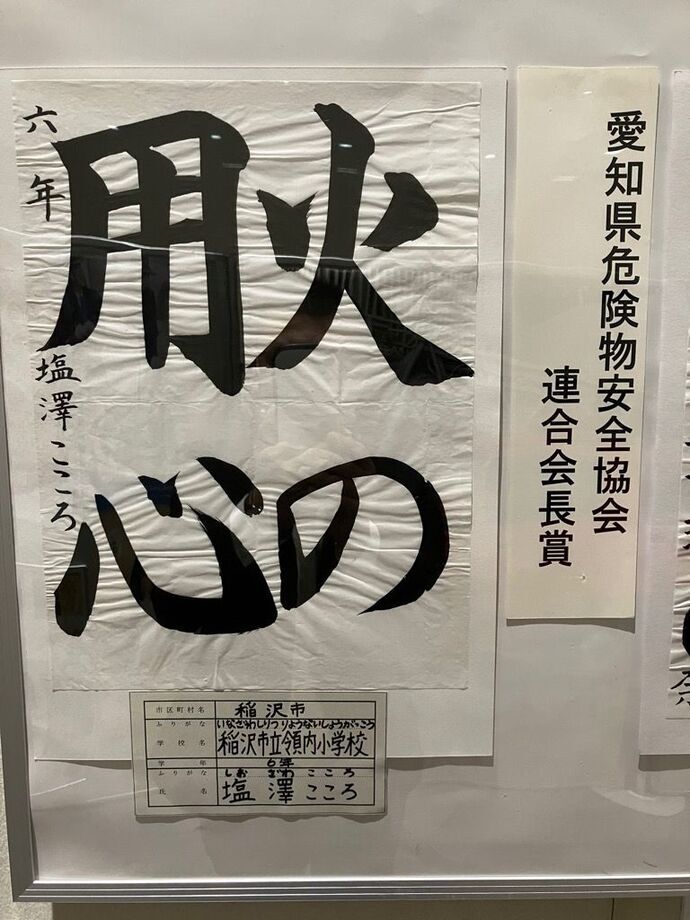 愛知県危険物安全協会
連合会長賞
火の
用心
六年 塩澤こころ
市区町村名 稲沢市
ふりがな いなざわしりつりょうないしょうがっこう
学校名 稲沢市立領内小学校
学年 6年
ふりがな しお ざわ こころ
氏名 塩澤こころ